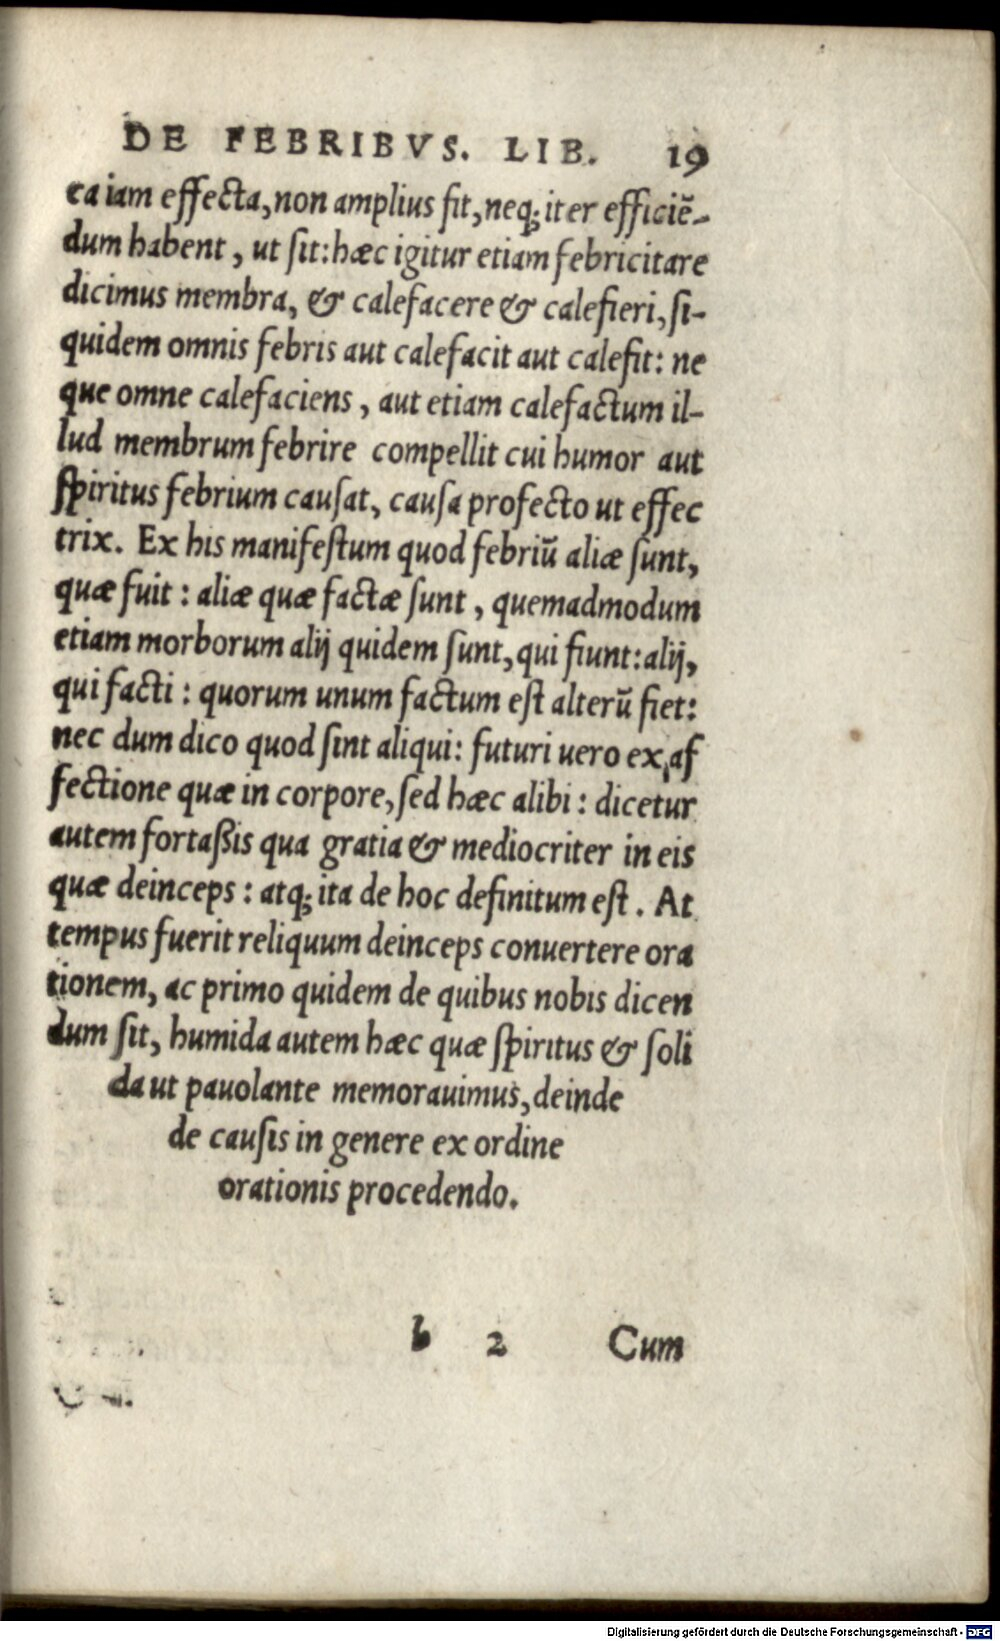 DE FEBRIBVS. LIB. 19
ca iam effecta, non amplius fit, neq; iter efficiē-
dum habent, ut ſit: hæc igitur etiam febricitare
dicimus membra, & calefacere & calefieri, ſi-
quidem omnis febris aut calefacit aut calefit: ne
que omne calefaciens, aut etiam calefactum il-
lud membrum febrire compellit cui humor aut
ſpiritus febrium cauſat, cauſa profecto ut effec
trix. Ex his manifeſtum quod febriū aliæ ſunt,
quæ fuit: aliæ quæ factæ ſunt, quemadmodum
etiam morborum alij quidem ſunt, qui fiunt: alij,
qui facti: quorum unum factum eſt alterū fiet:
nec dum dico quod ſint aliqui: futuri uero ex af
fectione quæ in corpore, ſed hæc alibi: dicetur
autem fortaßis qua gratia & mediocriter in eis
quæ deinceps: atq; ita de hoc definitum eſt. At
tempus fuerit reliquum deinceps conuertere ora
tionem, ac primo quidem de quibus nobis dicen
dum ſit, humida autem hæc quæ ſpiritus & ſoli
da ut pauolante memorauimus, deinde
de cauſis in genere ex ordine
orationis procedendo.
b 2 Cum
Digitalisierung gefördert durch die Deutsche Forschungsgemeinschaft - DFG